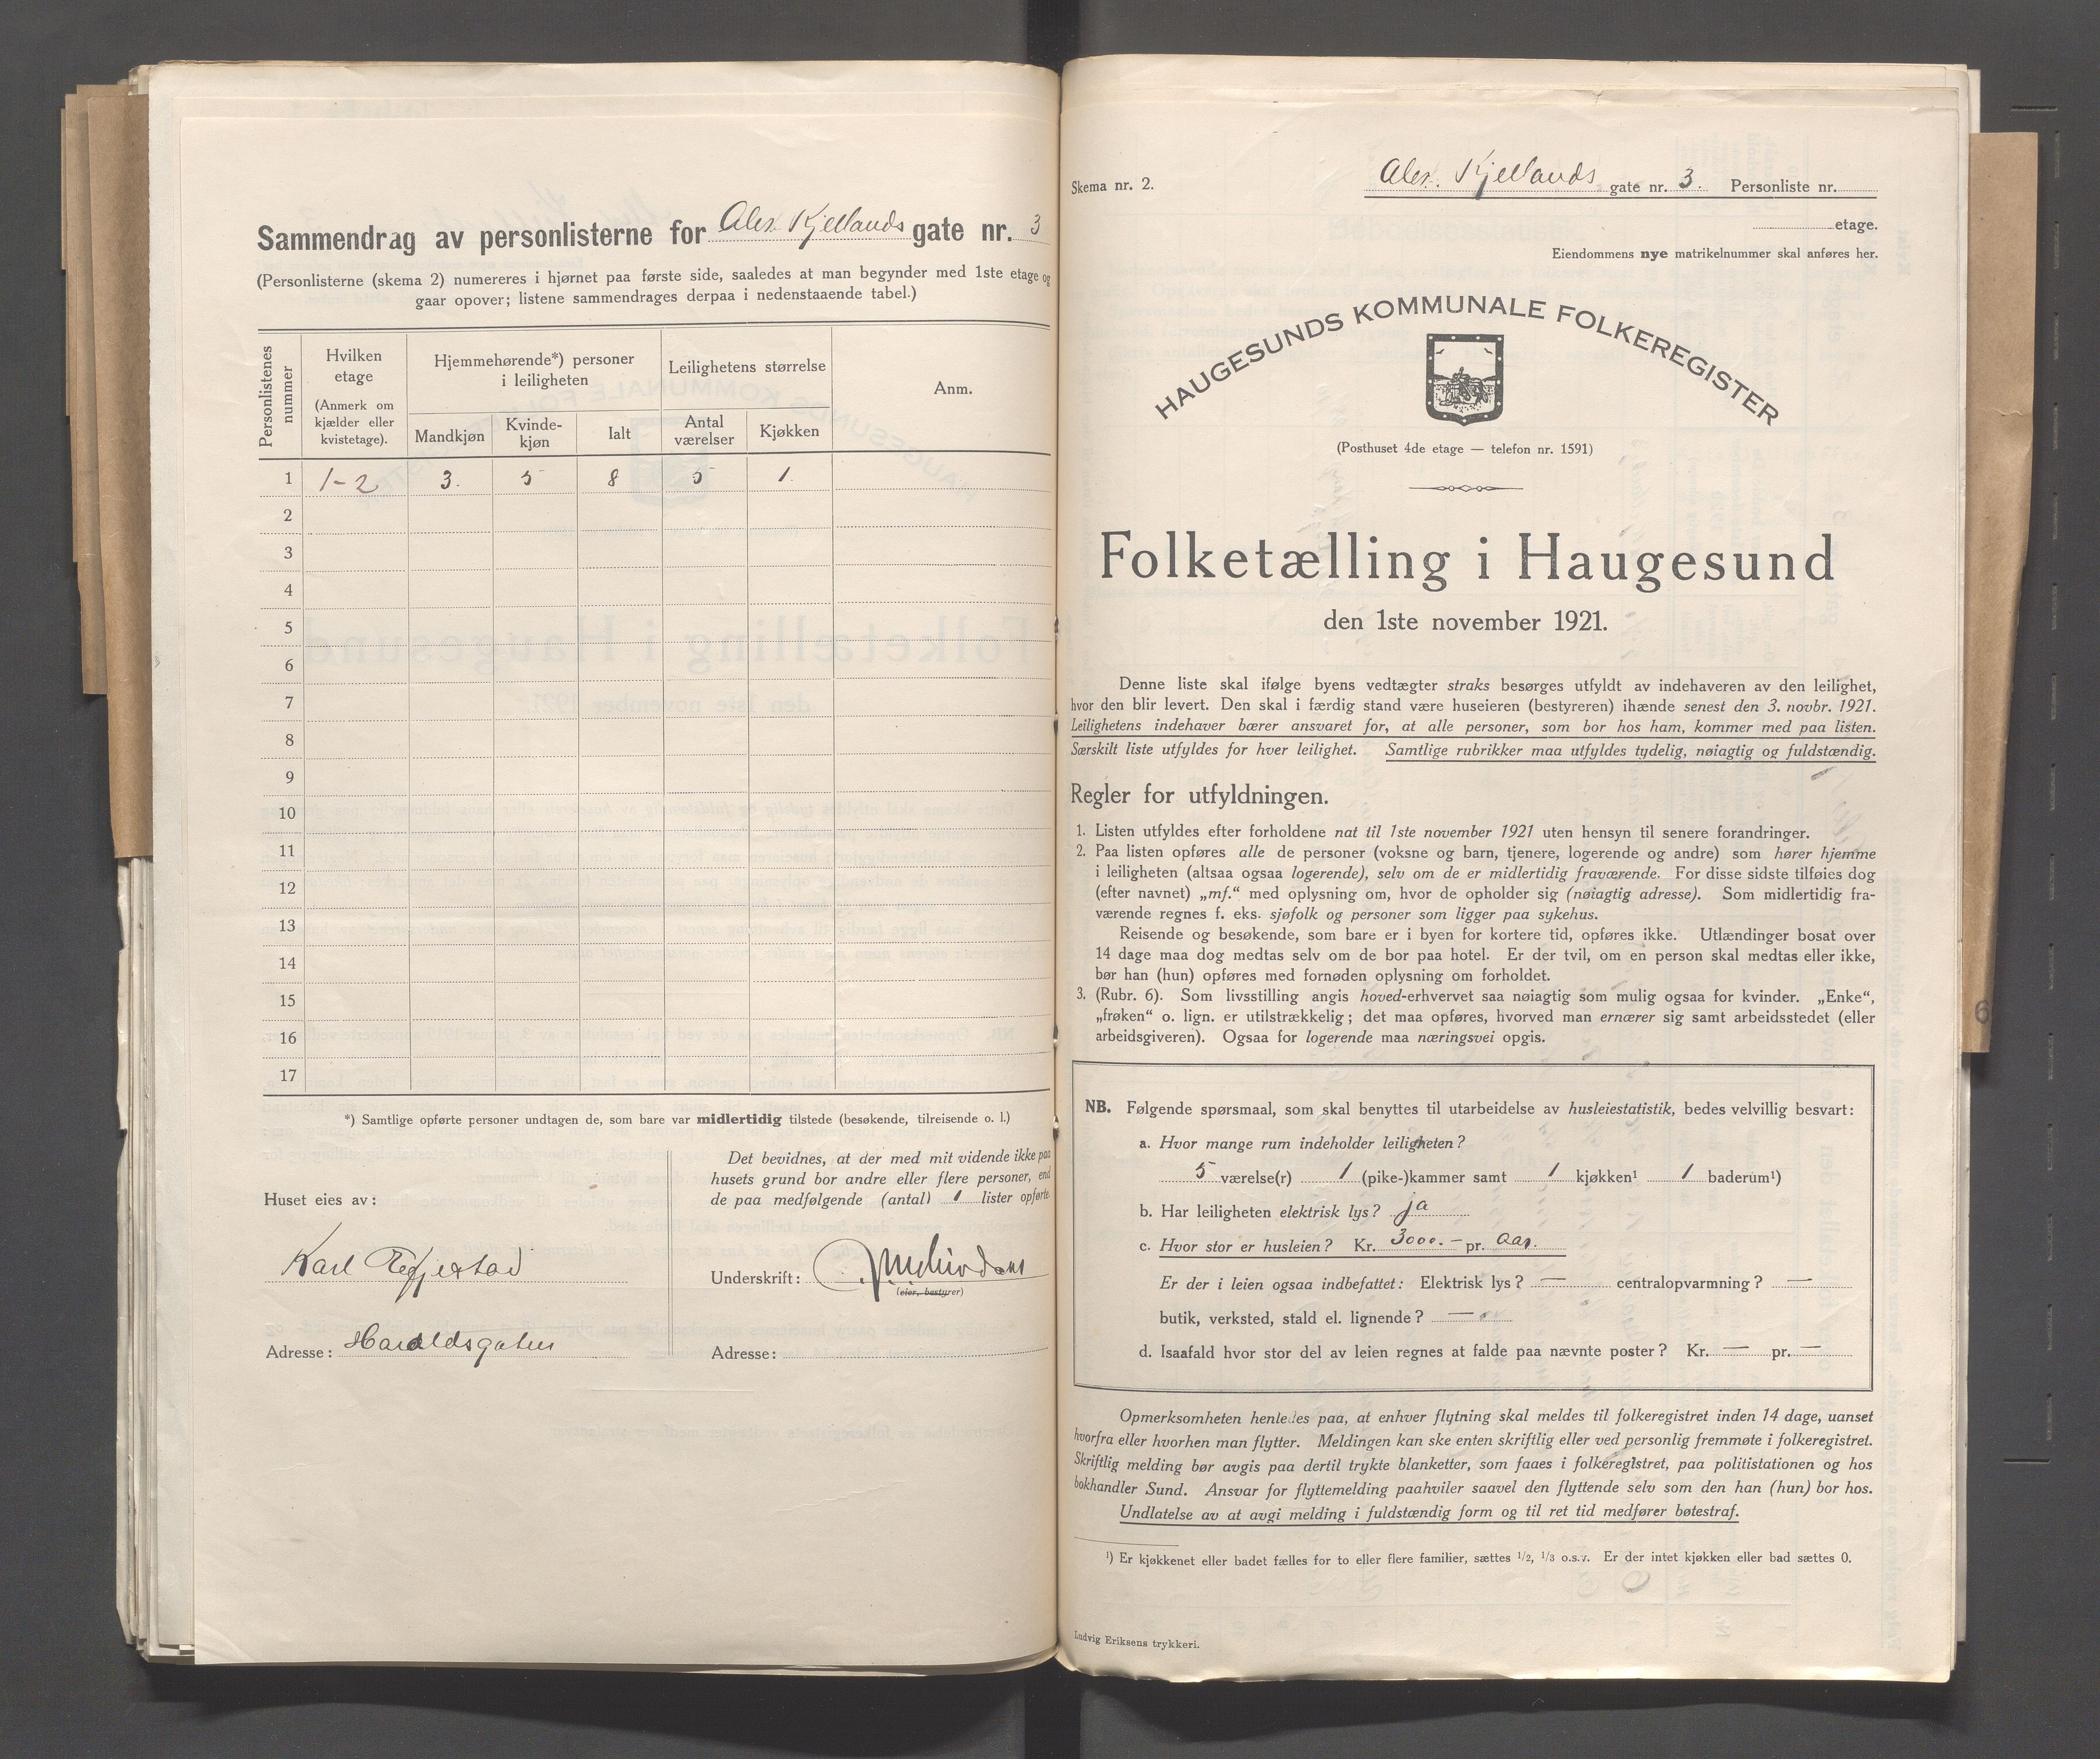 Sammendrag av personlisterne for Alex. Kjellands gate nr. 3
(Personlisterne (skema 2) numereres i hjørnet paa første side, saaledes at man begynder med 1ste etage og
gaar opover; listene sammendrages derpaa i nedenstaaende tabel.)
Personlistenes nummer
Hvilken etage
(Anmerk om kjælder eller kvistetage).
Hjemmehørende*) personer i leiligheten
Leilighetens størrelse
Anm.
Mandkjøn
Kvinde-kjøn
Ialt
Antal værelser
Kjøkken
1 1-2 3. 5 8 5 1
2
3
4
5
6
7
8
9
10
11
12
13
14
15
16
17
*) Samtlige opførte personer undtagen de, som bare var midlertidig tilstede (besøkende, tilreisende o. l.)
Huset eies av:
Karl
Adresse: Haraldsgaten
Det bevidnes, at der med mit vidende ikke paa
husets grund bor andre eller flere personer, end
de paa medfølgende (antal) 1 lister opførte.
Underskrift:
(eier, bestyrer)
Adresse:
Skema nr. 2.
Alex. Kjellands gate nr. 3. Personliste nr.
etage.
Eiendommens nye matrikelnummer skal anføres her.
HAUGESUNDS KOMMUNALE FOLKEREGISTER
(Posthuset 4de etage — telefon nr. 1591)
Folketælling i Haugesund
den 1ste november 1921.
Denne liste skal ifølge byens vedtægter straks besørges utfyldt av indehaveren av den leilighet,
hvor den blir levert. Den skal i færdig stand være huseieren (bestyreren) ihænde senest den 3. novbr. 1921.
Leilighetens indehaver bærer ansvaret for, at alle personer, som bor hos ham, kommer med paa listen.
Særskilt liste utfyldes for hver leilighet. Samtlige rubrikker maa utfyldes tydelig, nøiagtig og fuldstændig.
Regler for utfyldningen.
1. Listen utfyldes efter forholdene nat til 1ste november 1921 uten hensyn til senere forandringer.
2. Paa listen opføres alle de personer (voksne og barn, tjenere, logerende og andre) som hører hjemme
i leiligheten (altsaa ogsaa logerende), selv om de er midlertidig fraværende. For disse sidste tilføies dog
(efter navnet) „mf.“ med oplysning om, hvor de opholder sig (nøiagtig adresse). Som midlertidig fra-
værende regnes f. eks. sjøfolk og personer som ligger paa sykehus.
Reisende og besøkende, som bare er i byen for kortere tid, opføres ikke. Utlændinger bosat over
14 dage maa dog medtas selv om de bor paa hotel. Er der tvil, om en person skal medtas eller ikke,
bør han (hun) opføres med fornøden oplysning om forholdet.
3. (Rubr. 6). Som livsstilling angis hoved-erhvervet saa nøiagtig som mulig ogsaa for kvinder. „Enke“,
„frøken“ o. lign. er utilstrækkelig; det maa opføres, hvorved man ernærer sig samt arbeidsstedet (eller
arbeidsgiveren). Ogsaa for logerende maa næringsvei opgis.
NB. Følgende spørsmaal, som skal benyttes til utarbeidelse av husleiestatistik, bedes velvillig besvart:
a. Hvor mange rum indeholder leiligheten?
5 værelse(r) 1 (pike-)kammer samt 1 kjøkken¹ 1 baderum¹)
b. Har leiligheten elektrisk lys? ja
c. Hvor stor er husleien? Kr. 3000.- pr. aar.
Er der i leien ogsaa indbefattet: Elektrisk lys? — centralopvarmning? —
butik, verksted, stald el. lignende? —
d. Isaafald hvor stor del av leien regnes at falde paa nævnte poster? Kr. — pr. —
Opmerksomheten henledes paa, at enhver flytning skal meldes til folkeregistret inden 14 dage, uanset
hvorfra eller hvorhen man flytter. Meldingen kan ske enten skriftlig eller ved personlig fremmøte i folkeregistret.
Skriftlig melding bør avgis paa dertil trykte blanketter, som faaes i folkeregistret, paa politistationen og hos
bokhandler Sund. Ansvar for flyttemelding paahviler saavel den flyttende selv som den han (hun) bor hos.
Undlatelse av at avgi melding i fuldstændig form og til ret tid medfører bøtestraf.
¹) Er kjøkkenet eller badet fælles for to eller flere familier, sættes 1/2, 1/3 o.s.v. Er der intet kjøkken eller bad sættes 0.
Ludvig Eriksens trykkeri.
6